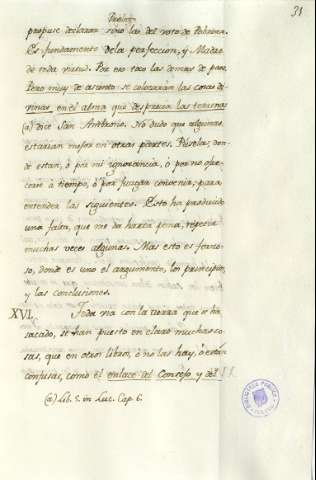 Prologo
31
propuse declarar sino las del voto de Pobreza.
Es fundamento de la perfección, y Madre
de toda virtud. Por eso toco las demas de paso.
Pero muy de asiento se colocarán las cosas di-
vinas en el alma que desprecia las terrenas
(a) dice San Ambrosio. No dudo que algunas
estarian mejor en otras partes. Púselas don-
de estan, ò por mi ignorancia, ò por no ofre-
cerse à tiempo, ò por juzgar convenia, para
entender las siguientes. Esto ha producido
una falta, que me da harta pena, repetir
muchas veces algunas. Mas esto es forzo-
so, donde es uno el argumento, los principios,
y las conclusiones.
XVI. Toda via con la tierra que se ha
sacado, se han puesto en claro muchas co-
sas, que en otro libro, ò no las hay, ò están
confusas, como el enlace del Consejo y del
(a) Lib. 5. in Luc. Cap. 6.
BIBLIOTECA PUBLICA
TOLEDO